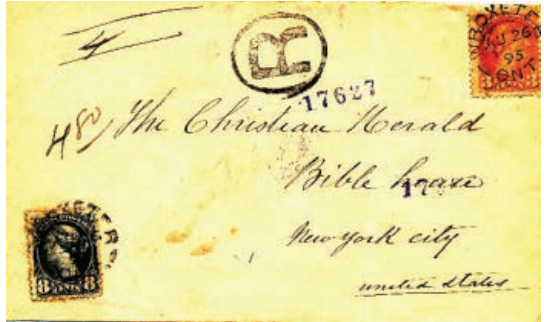 4
R
WROXETER
JU 26
95
ONT
17627
480
The Christian Herald
Bible house
17
New york city
united States
8 8